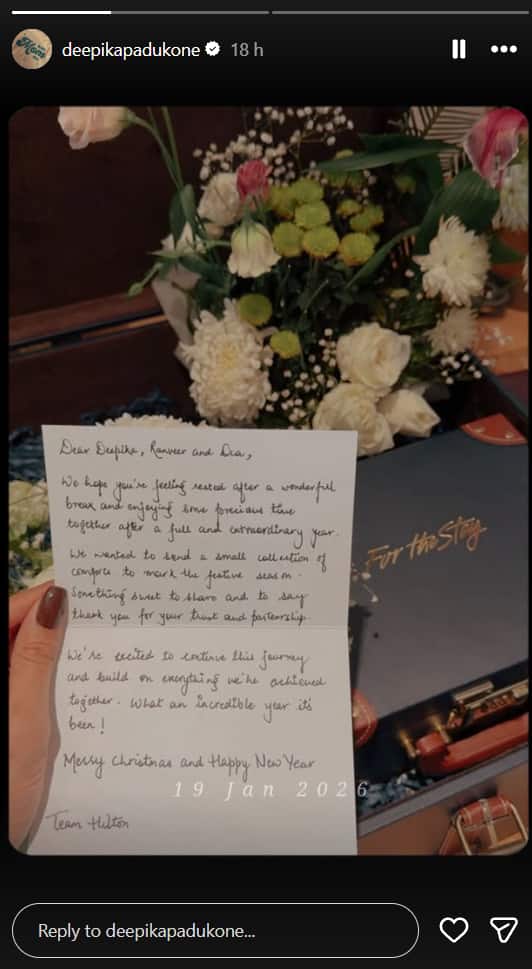 deepikapadukone 18 h
Dear Deepika, Ranveer and Dua,
We hope you're feeling rested after a wonderful
break and enjoying some precious time
together after a full and extraordinary year.
We wanted to send a small collection of
comforts to mark the festive season.
Something sweet to share and to say
thank you for your trust and partnership.
We're excited to continue this journey
and build on everything we've achieved
together. What an incredible year it's
been!
Merry Christmas and Happy New Year
19 Jan 2026
Team Hilton
For the Stay
Reply to deepikapadukone...